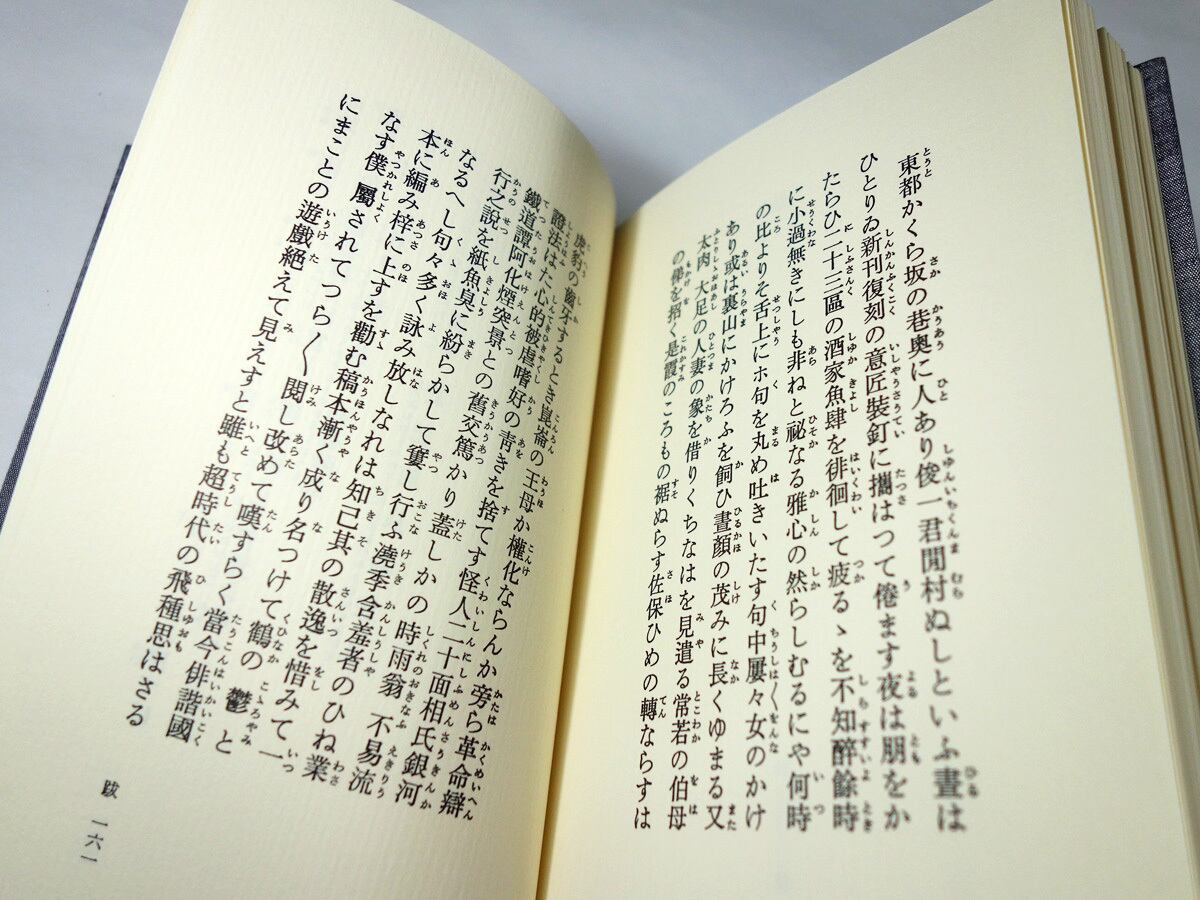 東都かくら坂の巷奥に人あり俊一君閒村ぬしといふ晝は
ひとりゐ新刊復刻の意匠裝釘に攜はつて倦ます夜は朋をか
たらひ二十三區の酒家魚肆を徘徊して疲るゝを不知醉餘時
に小過無きにしも非ねと祕なる雅心の然らしむるにや何時
の比よりそ舌上にホ句を丸め吐きいたす句中屢々女のかけ
あり或は裏山にかけろふを飼ひ晝顔の茂みに長くゆまる又
太肉 大足の人妻の象を借りくちなはを見遣る常若の伯母
の俤を招く是霞のころもの裾ぬらす佐保ひめの轉ならすは
虎豹の齒牙するとき崑崙の王母か權化ならんか旁ら革命辯
證法はた心的被虐嗜好の靑きを捨てす怪人二十面相氏銀河
鐵道譚阿化煙突景との舊交篤かり蓋しかの時雨翁 不易流
行之說を紙魚臭に紛らかして窶し行ふ澆季含羞者のひね業
なるへし句々多く詠み放しなれは知己其の散逸を惜みて一
本に編み梓に上すを勸む稿本漸く成り名つけて鶴の 鬱 と
なす僕 屬されてつら〱閱し改めて嘆すらく當今俳諧國
にまことの遊戲絶えて見えすと雖も超時代の飛種思はさる
跋 一六一